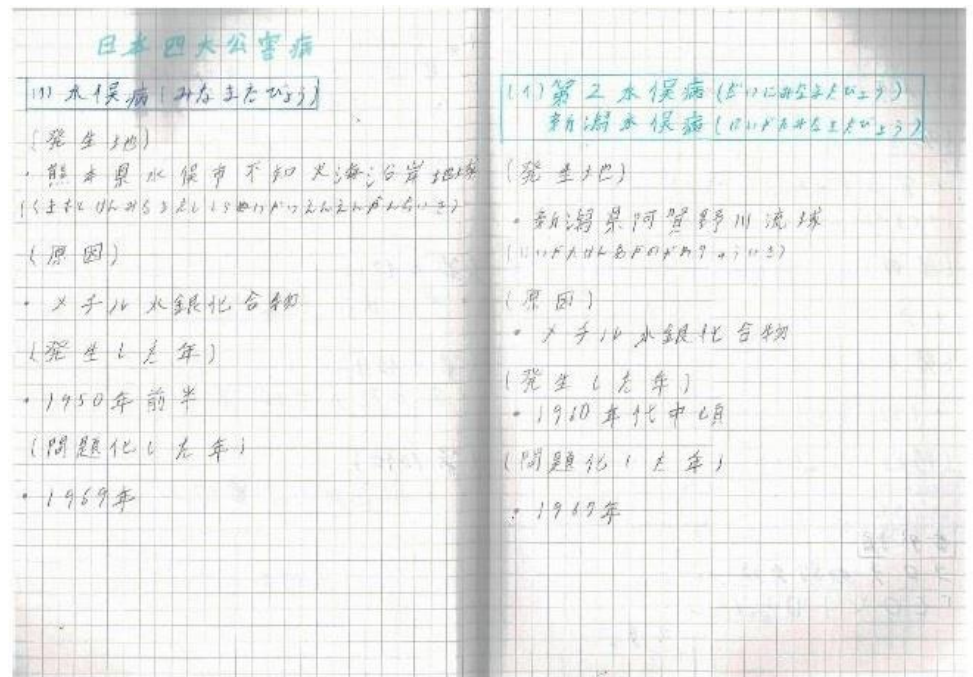 日本四大公害病
(1) 水俣病(みなまたびょう)
(発生地)
・熊本県水俣市不知火海沿岸地域
(くまもとけんみなまたししらぬいかいえんえんがんちいき)
(原因)
・メチル水銀化合物
(発生した年)
・1950年前半
(問題化した年)
・1969年
(1) 第2水俣病(だいにみなまたびょう)
新潟水俣病(にいがたみなまたびょう)
(発生地)
・新潟県阿賀野川流域
(にいがたけんあがのがわりゅういき)
(原因)
・メチル水銀化合物
(発生した年)
・1960年代中頃
(問題化した年)
・1967年